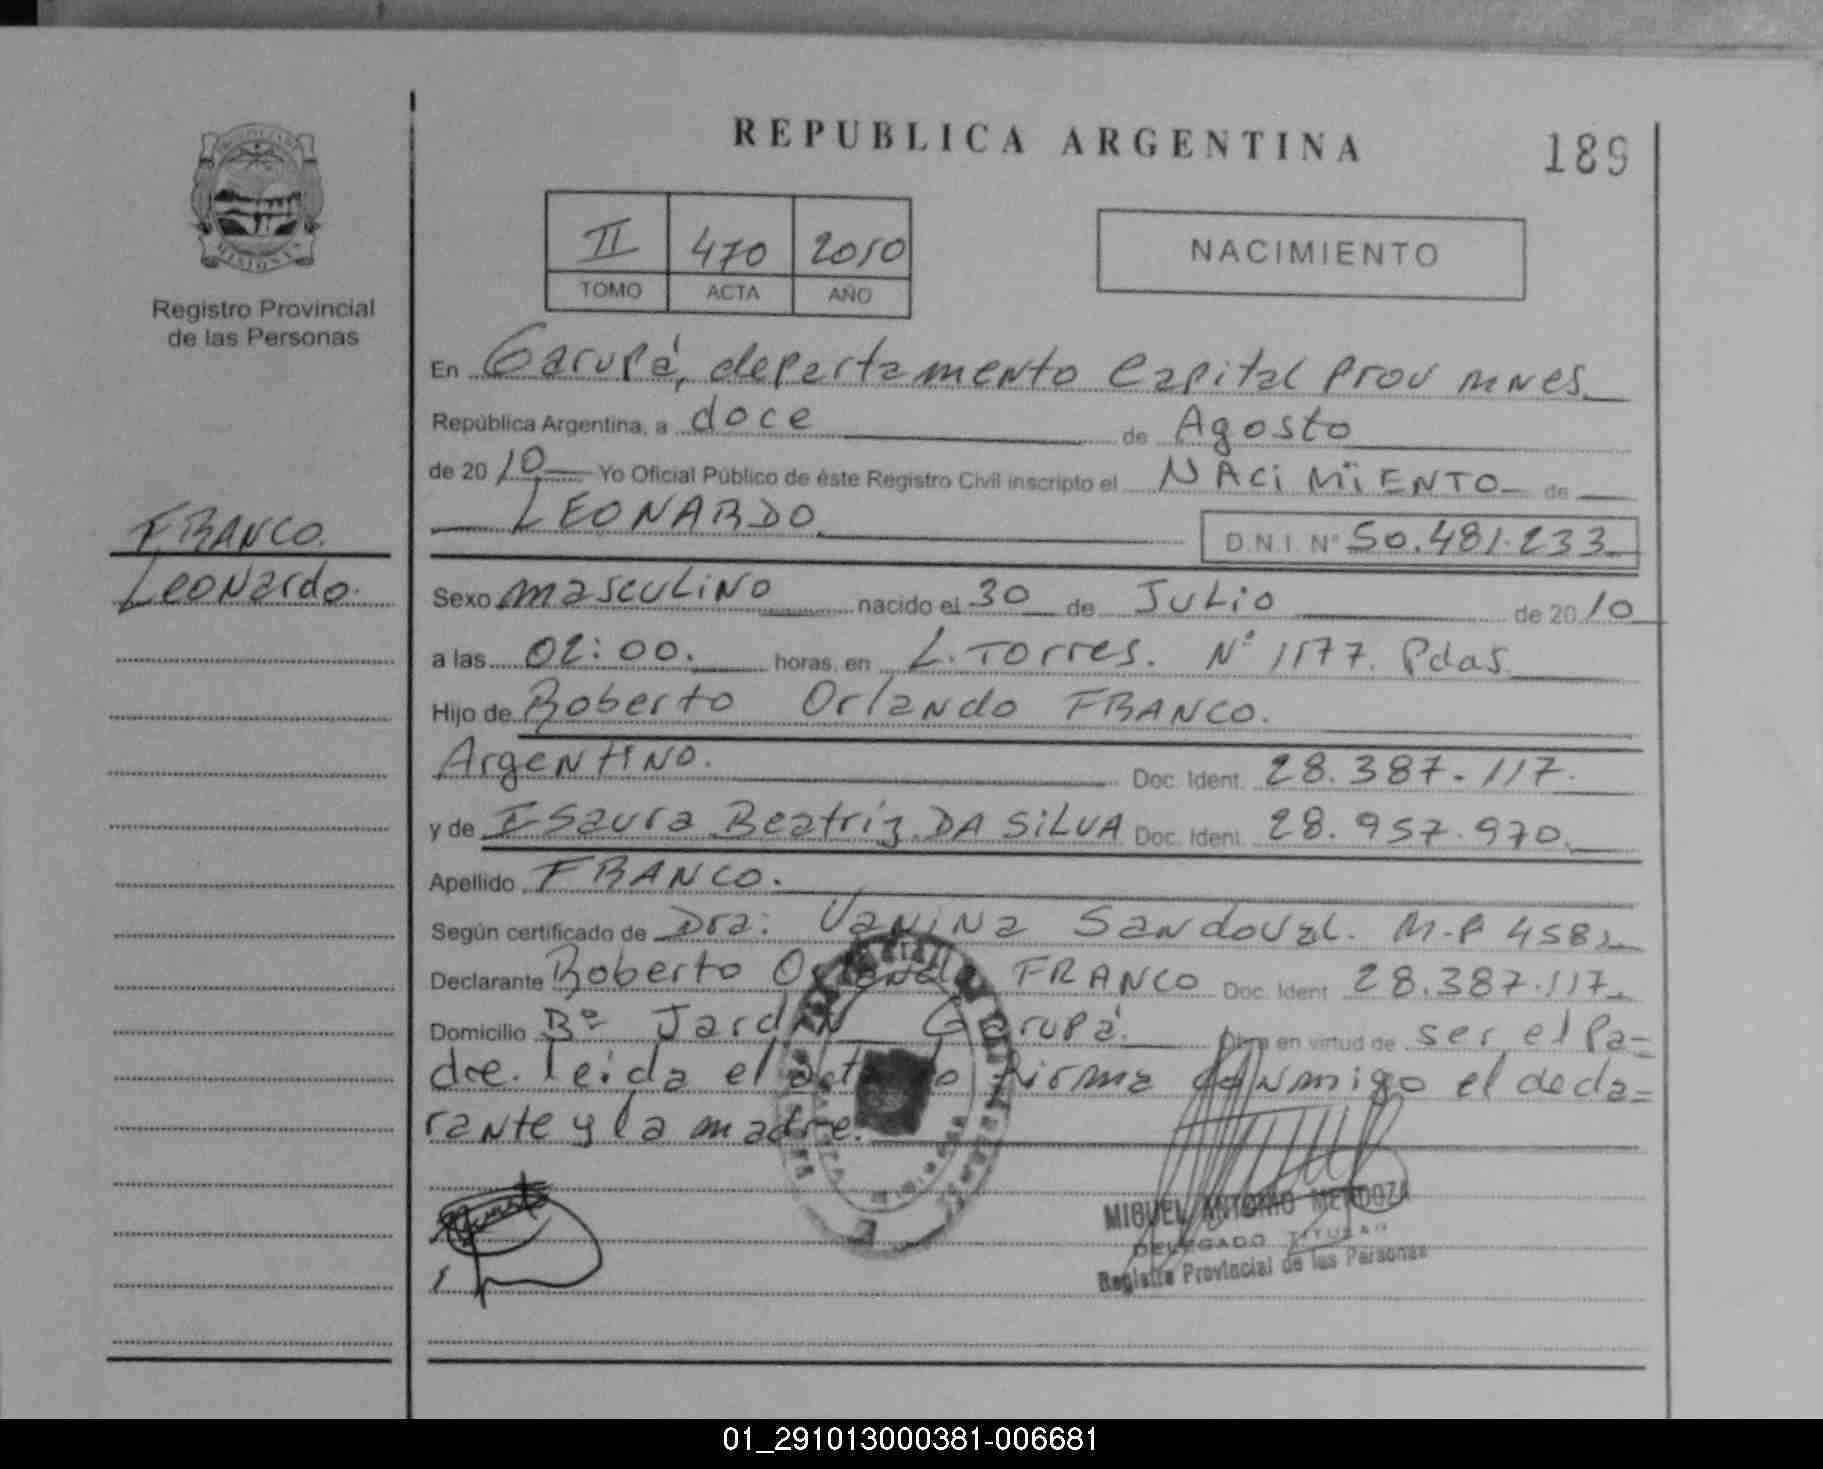 REPUBLICA ARGENTINA
189
MISIONES
Registro Provincial
de las Personas
II 470 2010
TOMO ACTA AÑO
NACIMIENTO
En Garupá, departamento Capital Prov mnes
República Argentina, a doce de Agosto
de 2010 Yo Oficial Público de éste Registro Civil inscripto el NACIMIENTO de
LEONARDO
D.N.I. Nº 50.481.233
FRANCO.
Leonardo.
Sexo masculino nacido el 30 de Julio de 2010
a las 02:00. horas, en L. Torres. Nº 1177. Pdas.
Hijo de Roberto Orlando FRANCO.
Argentino. Doc. Ident. 28.387.117.
y de Isaura Beatriz DA SILVA Doc. Ident. 28.957.970.
Apellido FRANCO.
Según certificado de Dra: Vanina Sandoval. M.P 458
Declarante Roberto Orlando FRANCO Doc. Ident 28.387.117
Domicilio Bº Jardín Garupá. Obra en virtud de ser el Pa=
dre. leida el acta lo firma conmigo el decla=
rante y la madre.
MIGUEL ANTONIO MENDOZA
DELEGADO TITULAR
Registro Provincial de las Personas
01_291013000381-006681